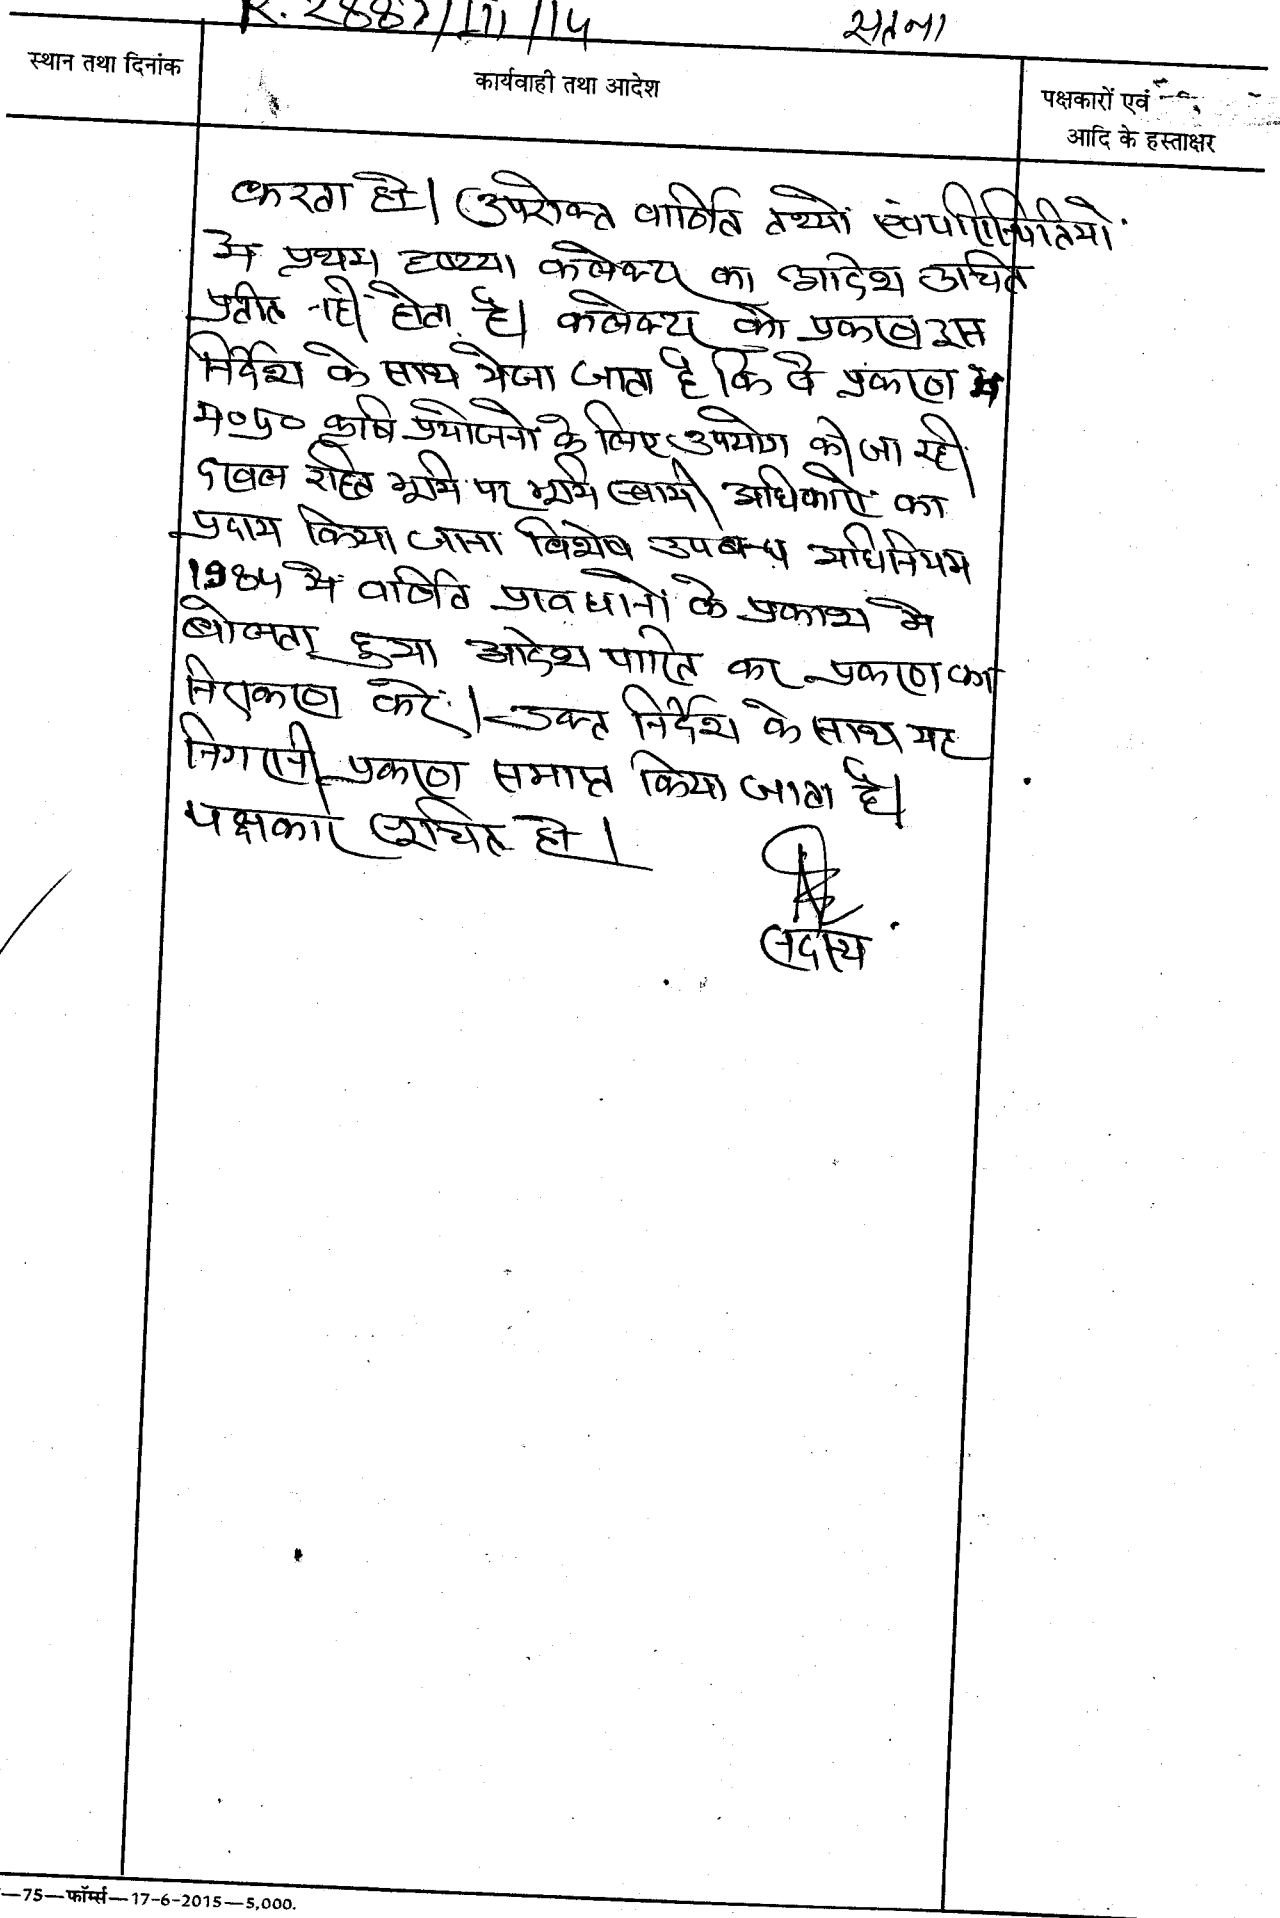 R. 2887/III/14 सतना
स्थान तथा दिनांक
कार्यवाही तथा आदेश
पक्षकारों एवं
आदि के हस्ताक्षर
करता हो। उपरोक्त वर्णित तथ्यों एवं परिस्थितियों
में प्रथम दृष्टया कलेक्टर का आदेश उचित
प्रतीत नहीं होता है। कलेक्टर को प्रकरण इस
निर्देश के साथ भेजा जाता है कि वे प्रकरण में
म०प्र० कृषि प्रयोजनों के लिए उपयोग की जा रही
दखल रहित भूमि पर भूमि स्वामी अधिकारों का
प्रदाय किया जाना विशेष उपबन्ध अधिनियम
1984 में वर्णित प्रावधानों के प्रकाश में
बोलता हुआ आदेश पारित कर प्रकरण का
निराकरण करें। उक्त निर्देश के साथ यह
निगरानी प्रकरण समाप्त किया जाता है।
पक्षकार सूचित हो।
सदस्य
—75—फॉर्म्स—17-6-2015—5,000.